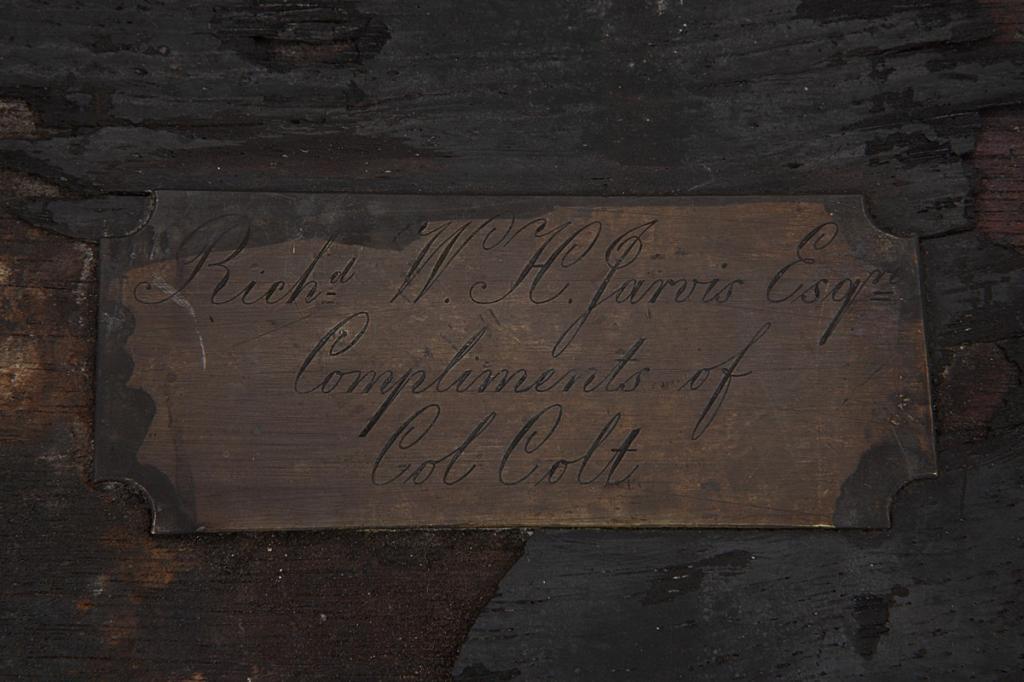 Richd W. H. Jarvis Esqre
Compliments of
Col Colt